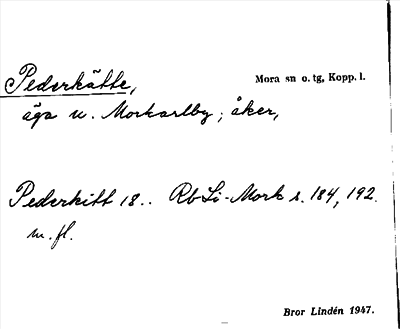 Pederkätte,
Mora sn o. tg, Kopp. l.
äga u. Morkarlby; åker,
Pederkitt 18.. RbLi-Mork s. 184, 192.
m. fl.
Bror Lindén 1947.